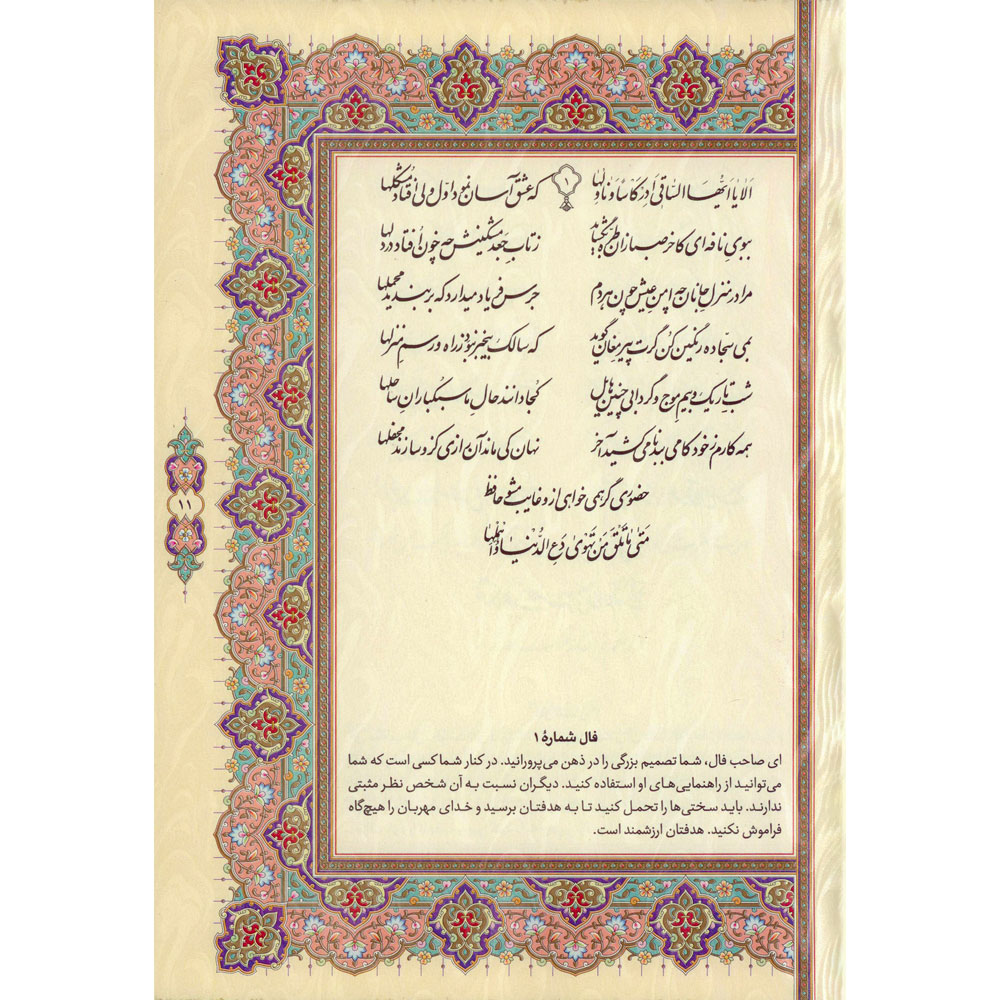 ۱
اَلا یا اَیُّهَا السّاقی اَدِرْ کَاْساً وَ ناوِلْها که عشق آسان نمود اوّل ولی افتاد مشکلها
ببوی نافه‌ای کاخر صبا زان طرّه بگشاید ز تاب جعد مشکینش چه خون افتاد در دلها
مرا در منزل جانان چه امن عیش چون هر دم جرس فریاد میدارد که بربندید محملها
بمی سجّاده رنگین کن گرت پیر مغان گوید که سالک بیخبر نبود ز راه و رسم منزلها
شب تاریک و بیم موج و گردابی چنین هایل کجا دانند حال ما سبکباران ساحلها
همه کارم ز خود کامی ببدنامی کشید آخر نهان کی ماند آن رازی کزو سازند محفلها
حضوری گر همی خواهی ازو غایب مشو حافظ
مَتیٰ ما تَلْقَ مَنْ تَهْویٰ دَعِ الدُّنْیا وَ اَهْمِلْها
۱۱
فال شمارهٔ ۱
ای صاحب فال، شما تصمیم بزرگی را در ذهن می‌پرورانید. در کنار شما کسی است که شما
می‌توانید از راهنمایی‌های او استفاده کنید. دیگران نسبت به آن شخص نظر مثبتی
ندارند. باید سختی‌ها را تحمل کنید تا به هدفتان برسید و خدای مهربان را هیچ‌گاه
فراموش نکنید. هدفتان ارزشمند است.